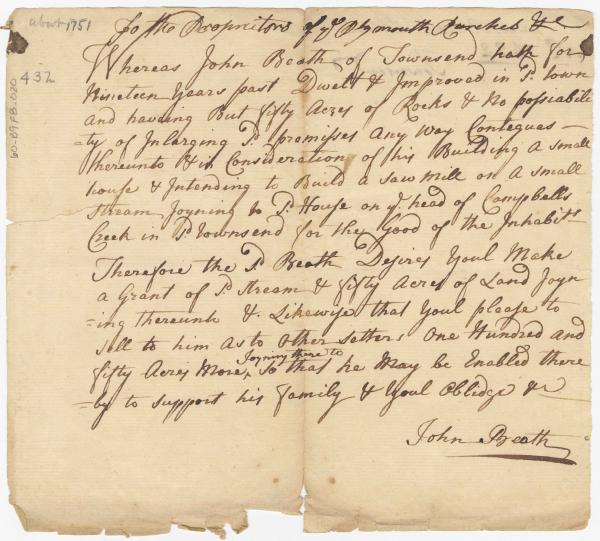 about 1751
To the Propriitors of ye Plymouth Purches &c
432
60-89FB.020
Whereas John Beath of Townsend hath for
Nineteen Years past Dwelt & Improved in Sd. town
and haveing But fifty Acres of Rocks & No possiabili
-ty of Inlarging Sd. premisses Any Way Conteguas
thereunto & in Consideration of his Building A small
house & Intending to Build a saw mill on A small
stream Joyning to Sd. House on ye. head of Campbells
Creek in Sd. townsend for the Good of the Inhabits
Therefore the Sd. Beath Desires Youl Make
a Grant of Sd. stream & fifty Acres of Land Joyn
=ing thereunto & Likewise that Youl please to
sell to him As to Other Setters One Hundred and
Joyning there to
fifty Acres More, ^ So that he May be Enabled there
=by to support his family & Youl Oblidge &c
John Beath